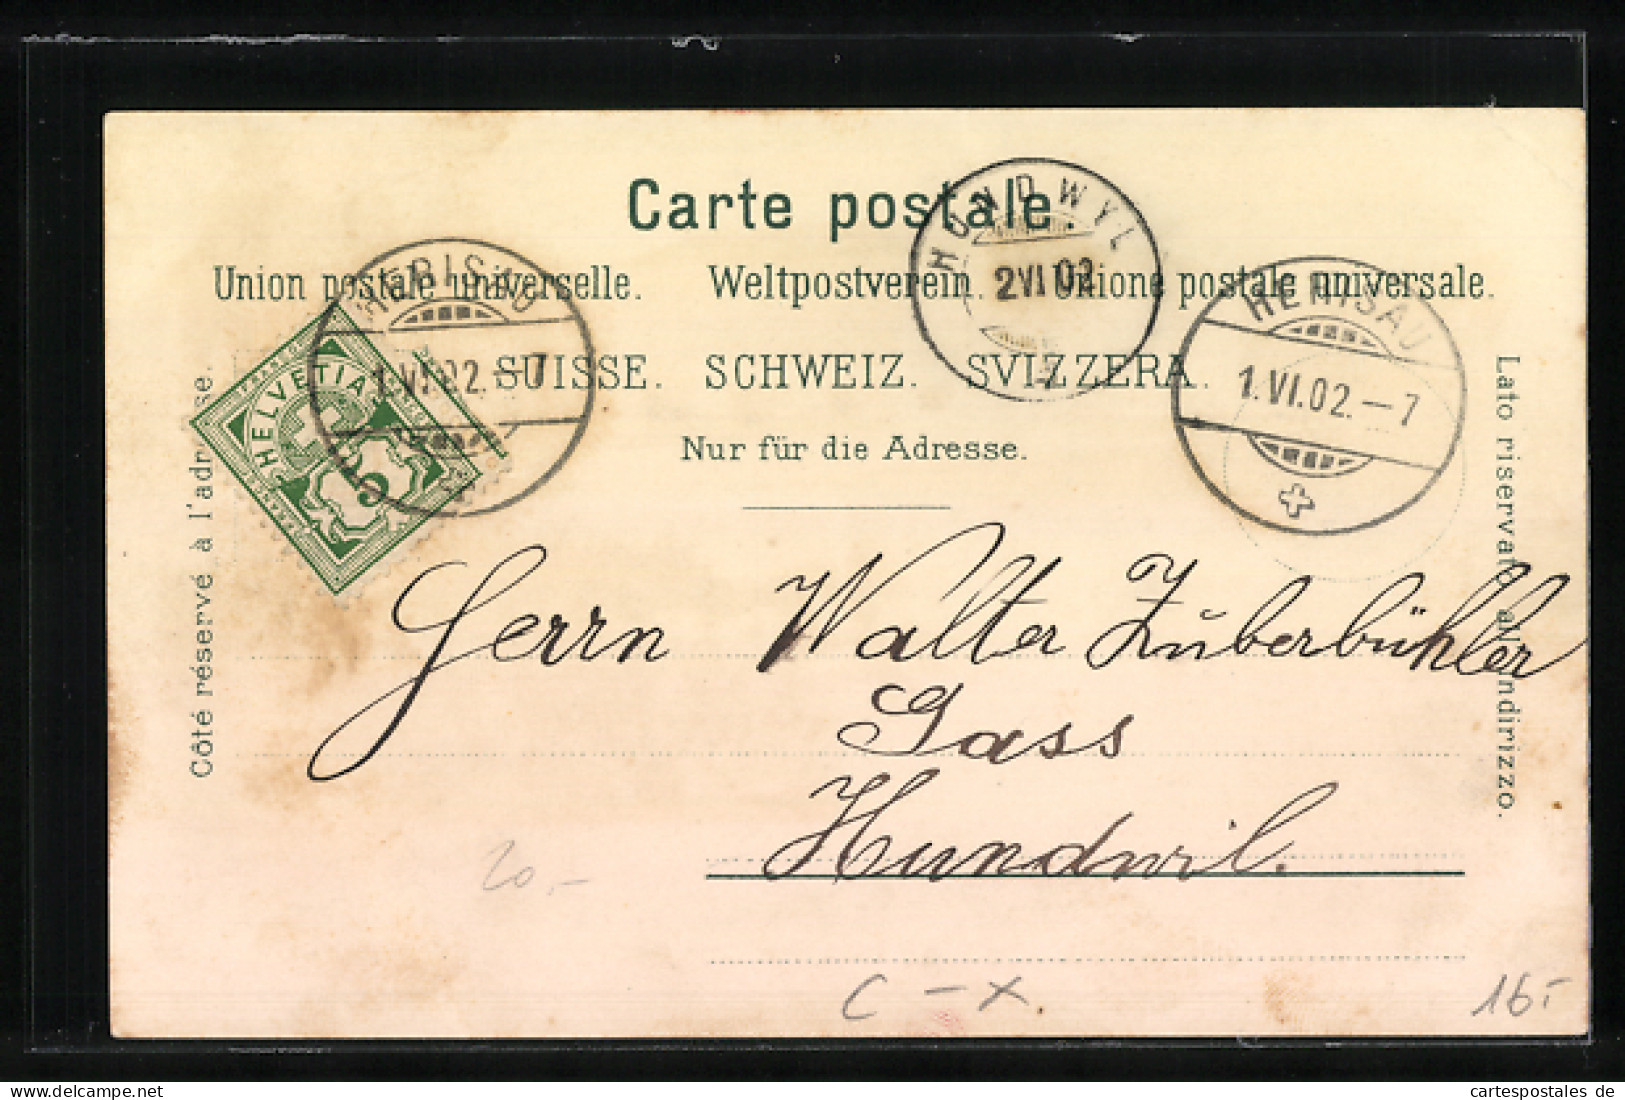 Carte postale.
Union postale universelle. Weltpostverein. Unione postale universale.
SUISSE. SCHWEIZ. SVIZZERA.
Nur für die Adresse.
Côté réservé à l'adresse.
Lato riservato all'indirizzo.
HELVETIA
5
HERISAU
1.VI.02.-7
HUNDWYL
2 VI 02
7
HERISAU
1.VI.02.-7
Herrn Walter Zuberbühler
Gass
Hundwil.
20.-
C - X
16.-
cartespostales de